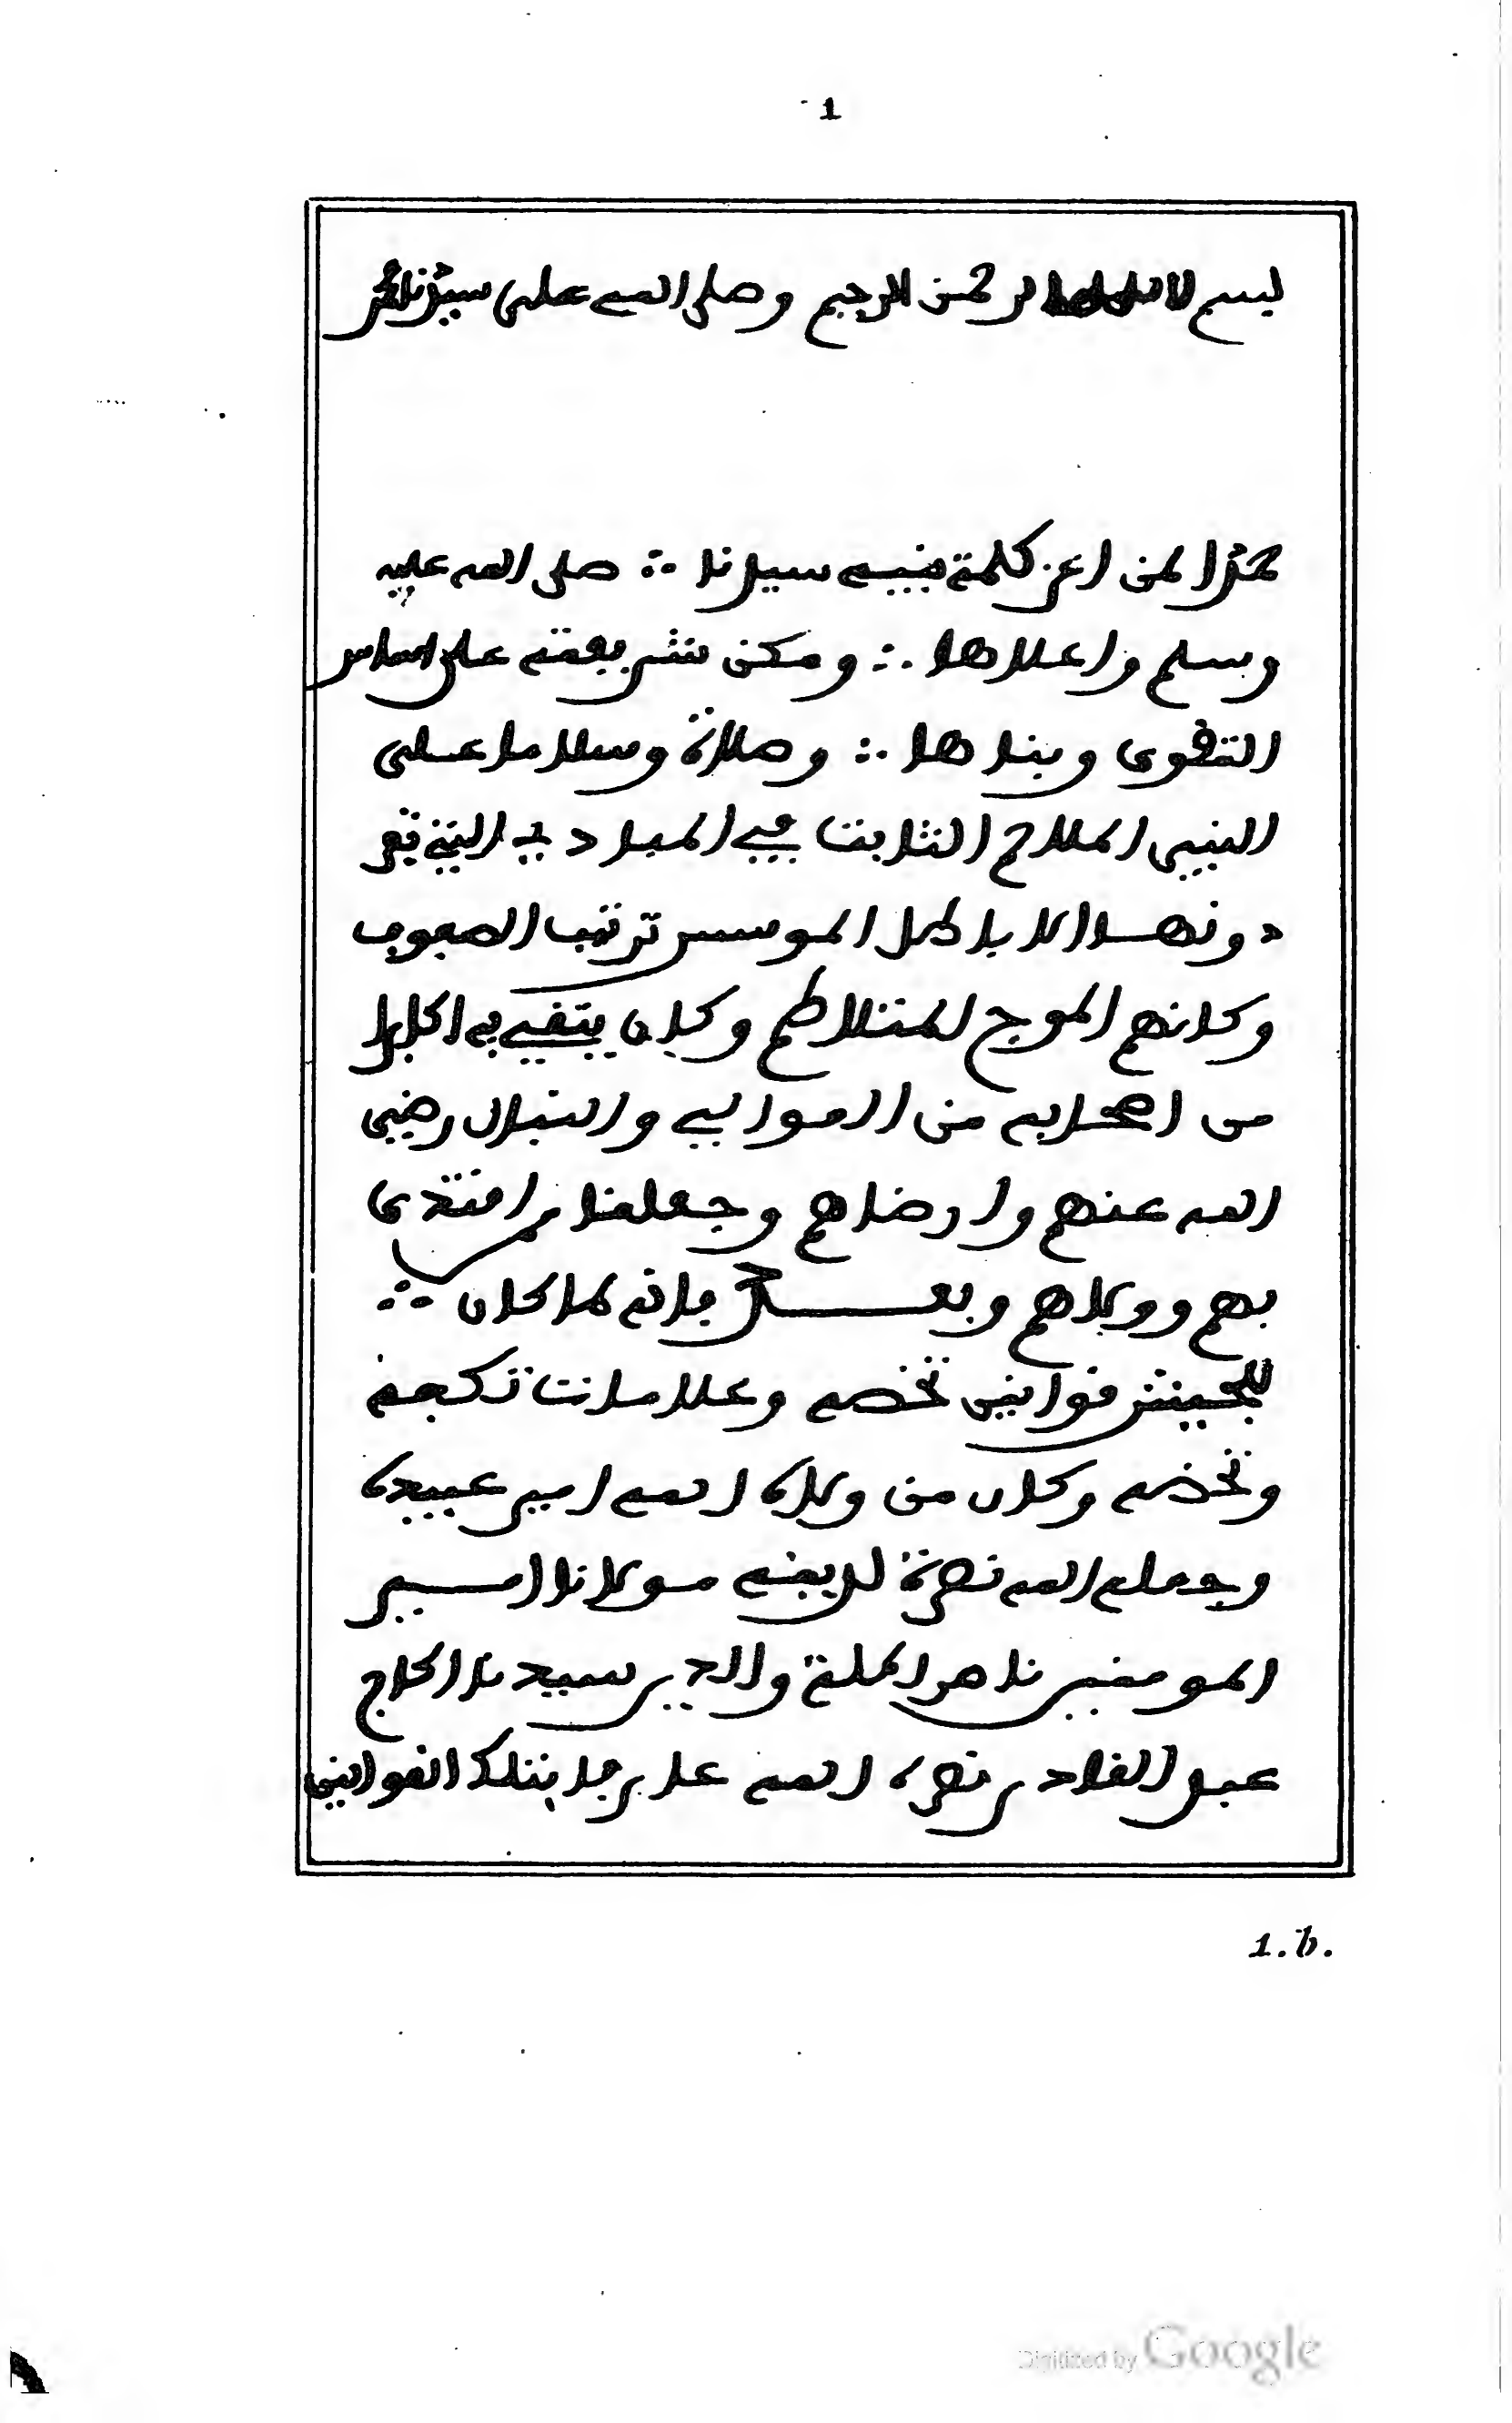 1
بسم الله الرحمن الرحيم وصلى الله على سيدنا محمد
حمدا لمن اعز كلمة نبيه سيدنا ∴ صلى الله عليه
وسلم واعلاها ∴ ومكن شريعته على اساس
التقوى وبناها ∴ وصلاة وسلاما على
النبي الملاح الثابت في المبادي التي تفر
دونها الاباطل الموسس ترتيب الصفوف
وكانهم الموج المتلاطم وكان يتقي به اكابر
من اصحابه من العوالي والنبال رضي
الله عنهم وارضاهم وجعلنا ممن اقتدى
بهم ووالاهم وبعد فانه لما كان ∴
للجيش قوانين تخصه وعلامات
وتخضه وكان من ولاه الله امير عبيده
وجعله الله نصرة لدينه مولانا امير
المومنين ناصر الملة والدين سيدنا الحاج
عبد القادر نصره الله على بتلك القوانين
1.b.
Digitized by Google